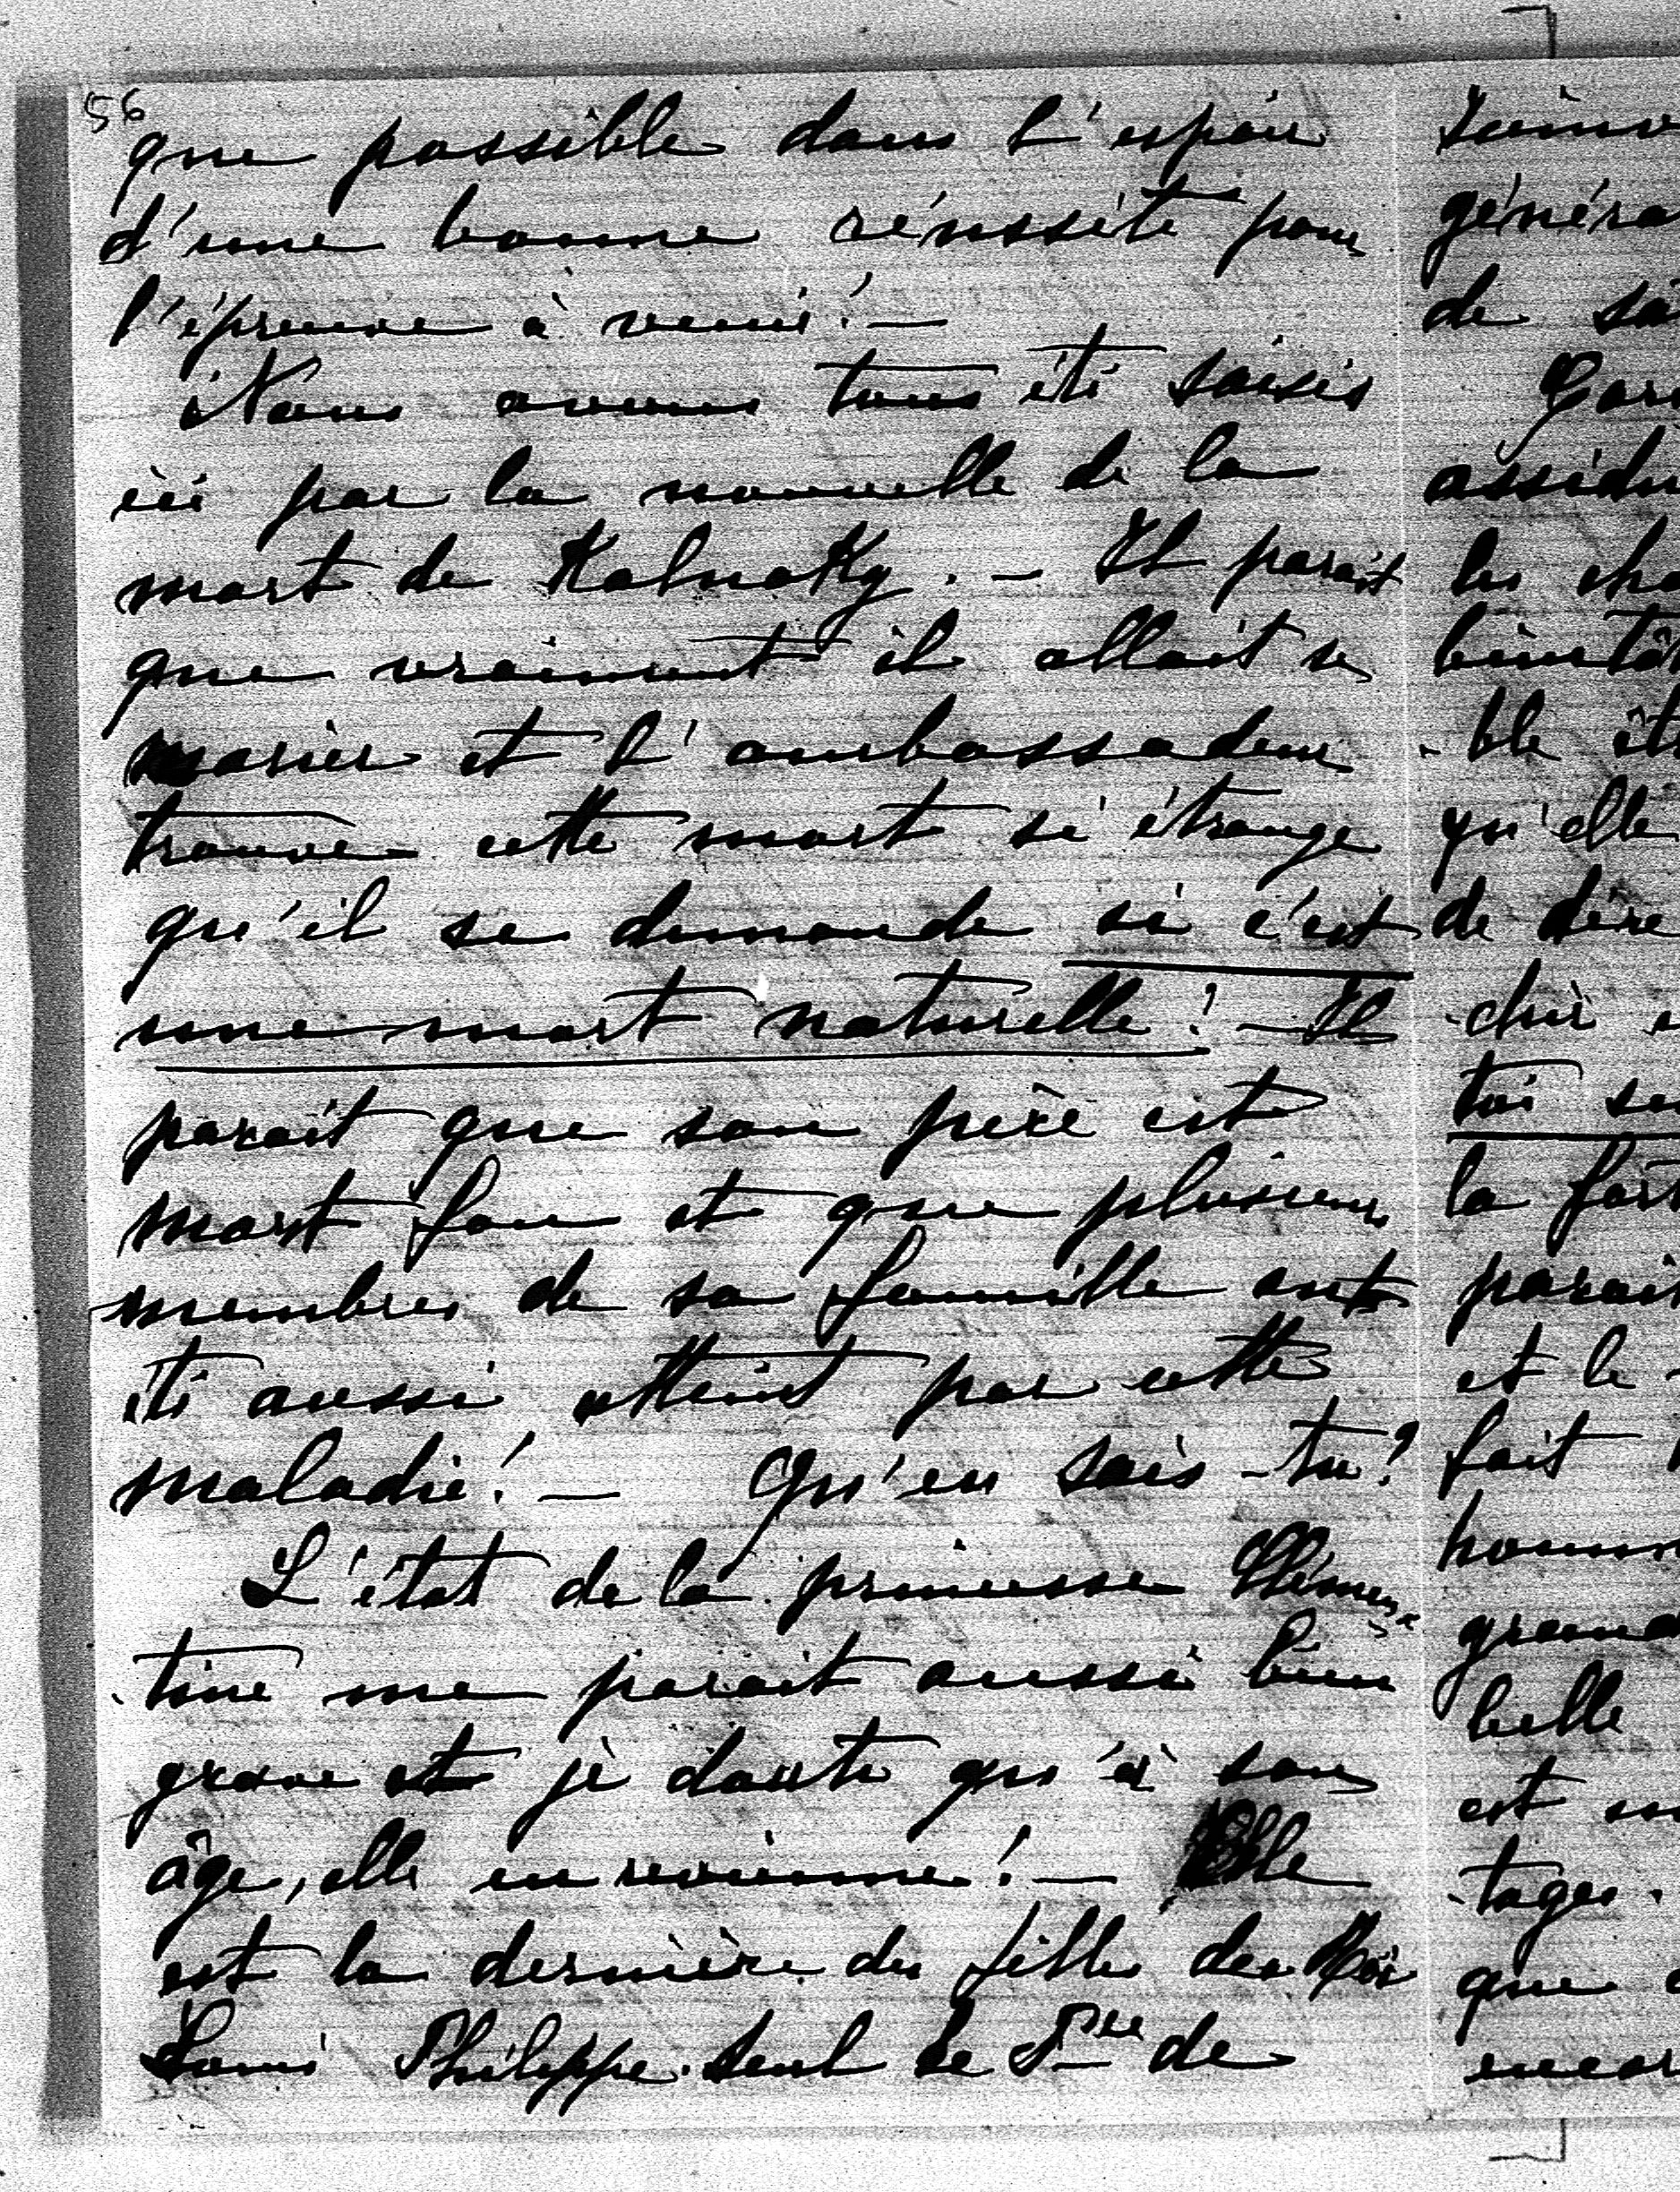 56
que possible dans l'espoir
d'une bonne réussite pour
l'épreuve à venir! —
Nous avons tous été saisis
ici par la nouvelle de la
mort de Kalnoky. — Il parait
que vraiment il allait se
marier et l'ambassadeur
trouve cette mort si étrange
qu'il se demande si c'est
une mort naturelle! — Il
parait que son père est
mort fou et que plusieurs
membres de sa famille ont
été aussi atteint par cette
maladie! — Qu'en sais-tu?
L'état de la princesse Clémen-
-tine me parait aussi bien
grave et je doute qu'à son
âge, elle en revienne! — Elle
est la dernière des filles du Roi
Louis Philippe. Seul le Pce de
généra
de sa
assidu
les cha
bientôt
-ble
qu'elle
de dire
toi
la
parait
et le
fait
grand
belle
est
-tages.
que